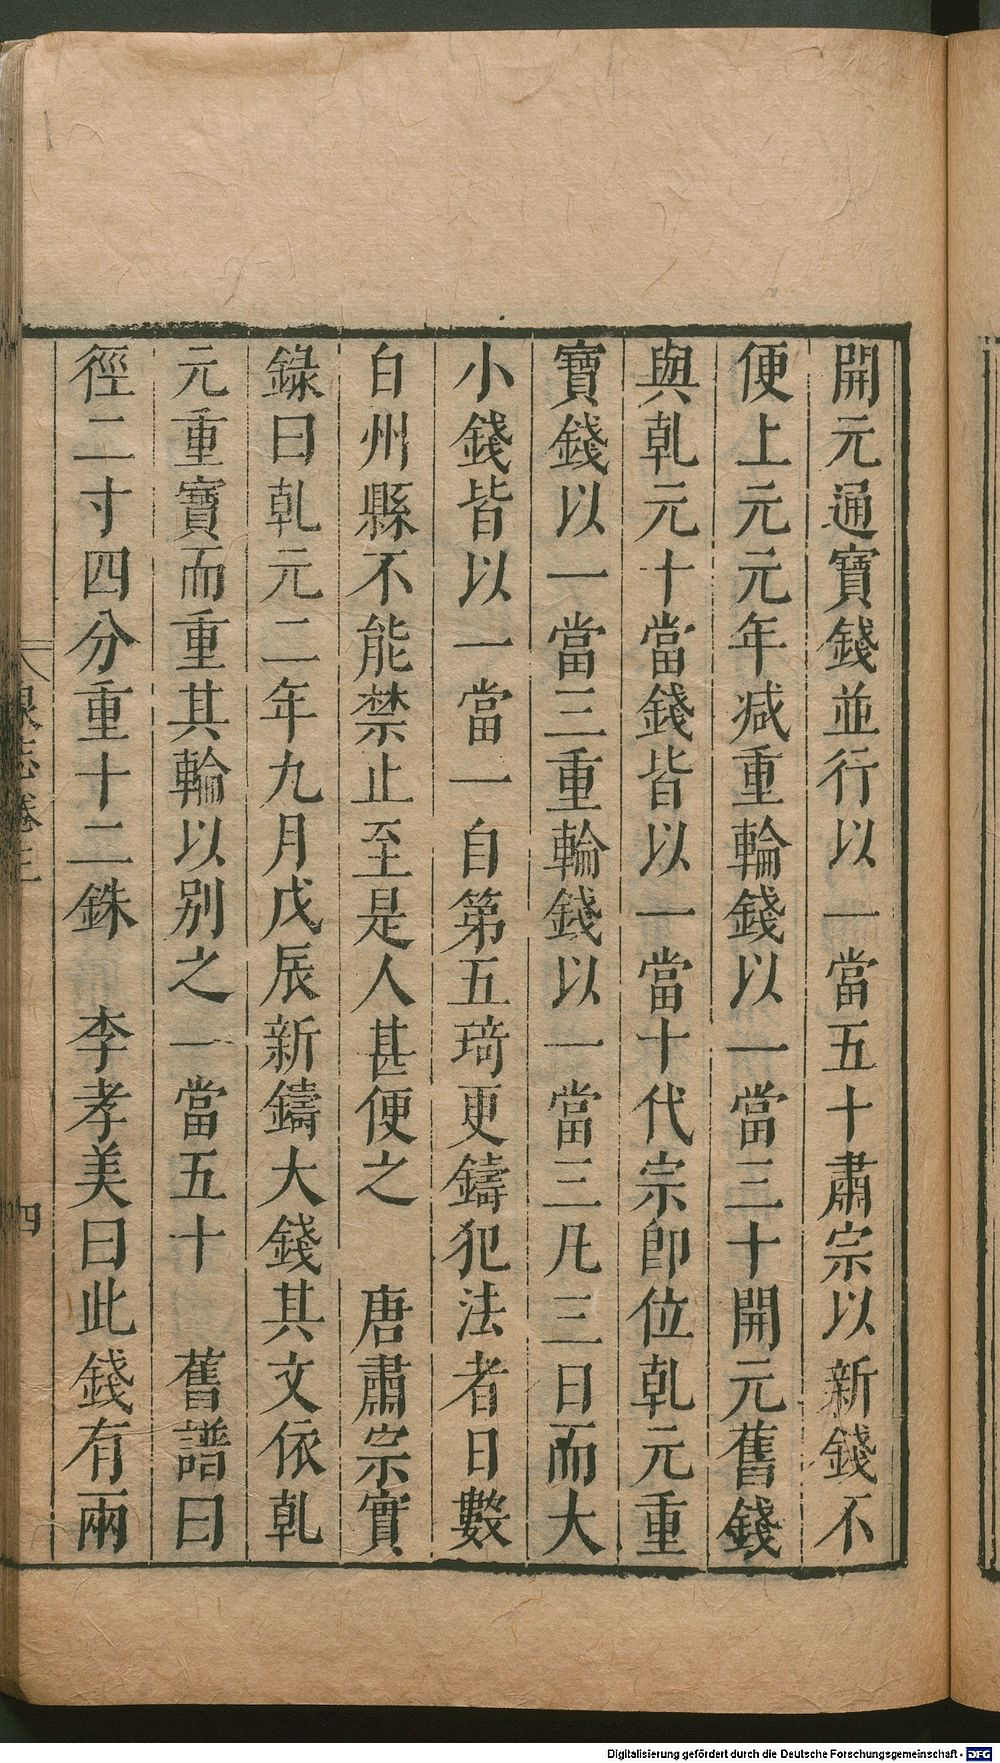 開元通寶錢並行以一當五十肅宗以新錢不
便上元元年减重輪錢以一當三十開元舊錢
與乹元十當錢皆以一當十代宗即位乹元重
寶錢以一當三重輪錢以一當三凡三日而大
小錢皆以一當一自第五琦更鑄犯法者日數
百州縣不能禁止至是人甚便之　唐肅宗實
錄曰乹元二年九月戊辰新鑄大錢其文依乹
元重寶而重其輪以别之一當五十　舊譜曰
徑二寸四分重十二銖　李孝美曰此錢有兩
泉志卷三
四
Digitalisierung gefördert durch die Deutsche Forschungsgemeinschaft - DFG